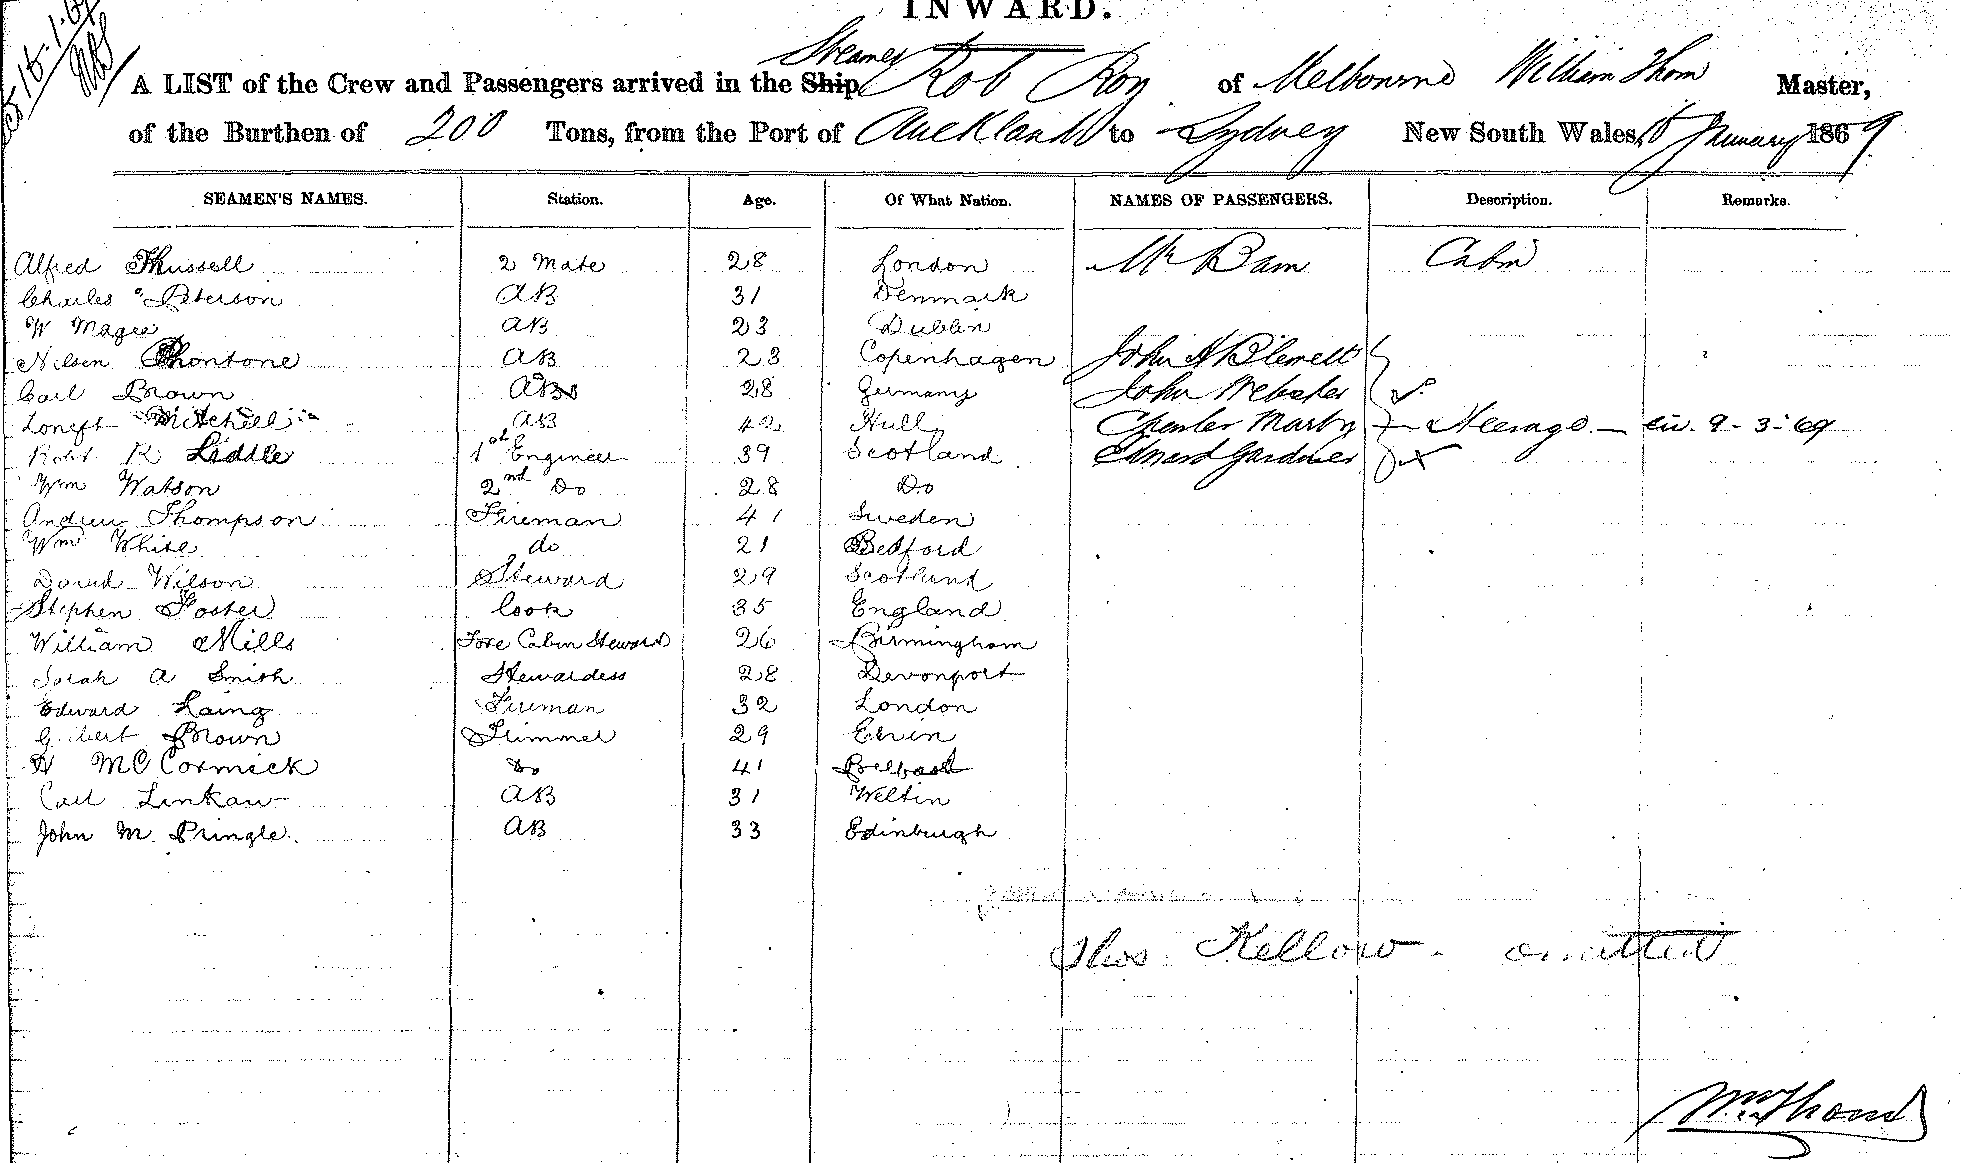 INWARD.
A LIST of the Crew and Passengers arrived in the Ship Steamer Rob Roy of Melbourne William Thom Master,
of the Burthen of 200 Tons, from the Port of Auckland to Sydney New South Wales, January 1869
SEAMEN'S NAMES. Station. Age. Of What Nation. NAMES OF PASSENGERS. Description. Remarks.
Alfred Thussell 2 Mate 28 London Mr Bam Cabin
Charles Peterson AB 31 Denmark
W Magee AB 23 Dublin
Nilsen AB 23 Copenhagen John A Blewett
Carl Brown AB 28 Germany John Webster
Mitchell AB 42 Hull Charles Steerage 9-3-69
Robt R Liddle 1st Engineer 39 Scotland Edward Gardner
Wm Watson 2nd Do 28 Do
Andrew Thompson Fireman 41 Sweden
Wm White do 21 Bedford
David Wilson Steward 29 Scotland
Stephen Foster Cook 35 England
William Mills Fore Cabin Steward 26 Birmingham
Sarah A Smith Stewardess 28 Devonport
Edward Laing Fireman 32 London
Gilbert Brown Trimmer 29 Errin
H McCormick Do 41 Belfast
Carl Linkaw AB 31 Weltin
John M Pringle. AB 33 Edinburgh
Thos Kellow - omitted
Wm Thom